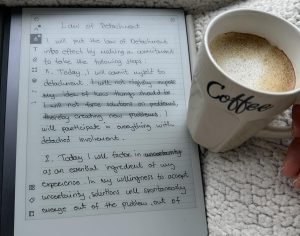 Law of Detachment
I will put the Law of Detachment
into effect by making a commitment
to take the following steps:
1. Today, I will commit myself to
detachment. I will not rigidly impose
my idea of how things should be
I will not force solutions on problems,
thereby creating new problems. I
will participate in everything with
detached involvement.
2. Today I will factor in uncertainty
as an essential ingredient of my
experience. In my willingness to accept
uncertainty, solutions will spontaneously
emerge out of the problem, out of
Coffee